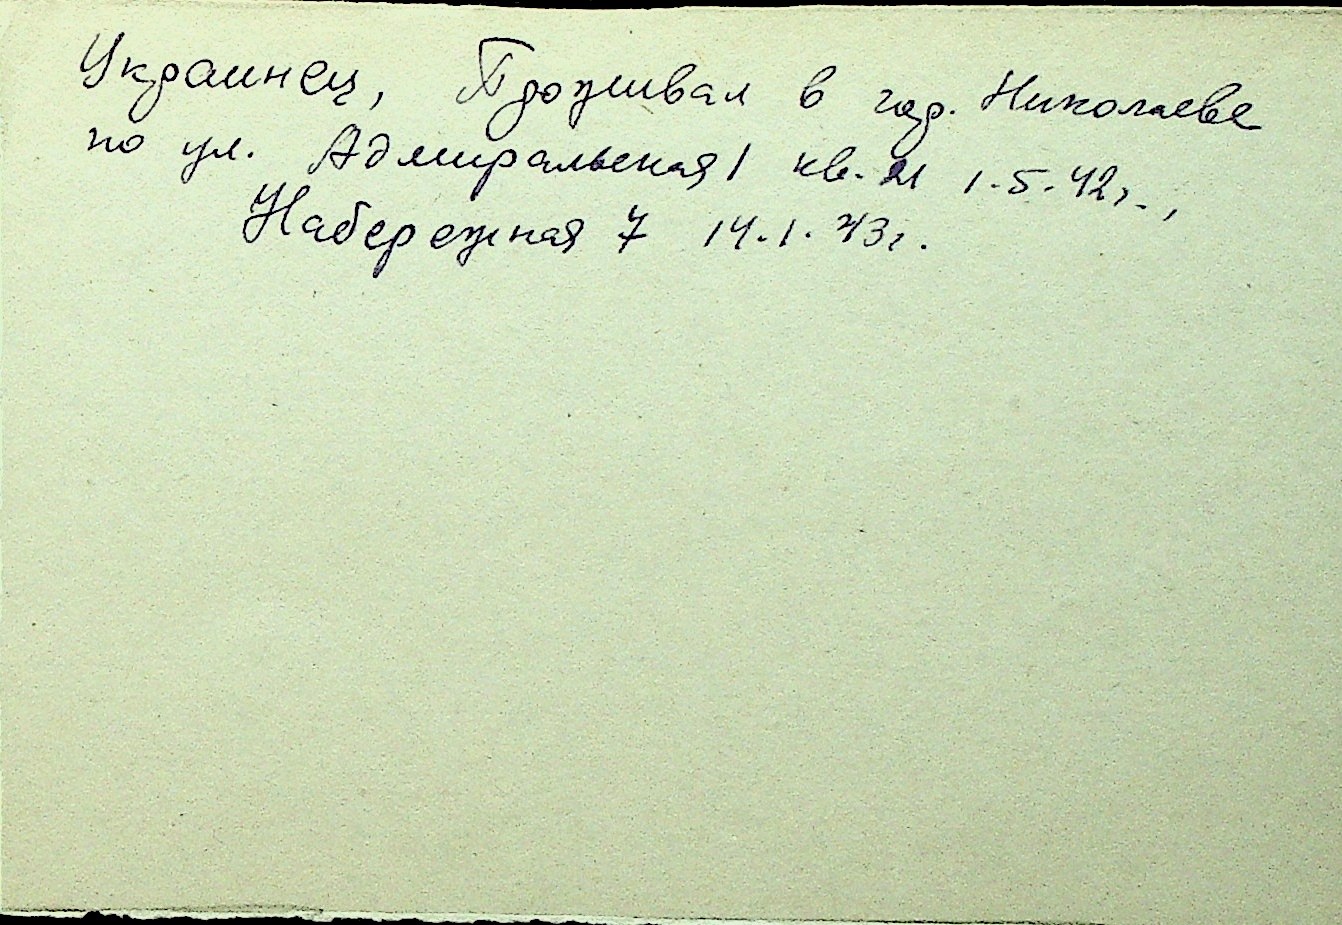 Украинец, Проживал в гор. Николаеве
по ул. Адмиральская 1 кв. 21 1.5.42г.,
Набережная 7 14.1.43г.